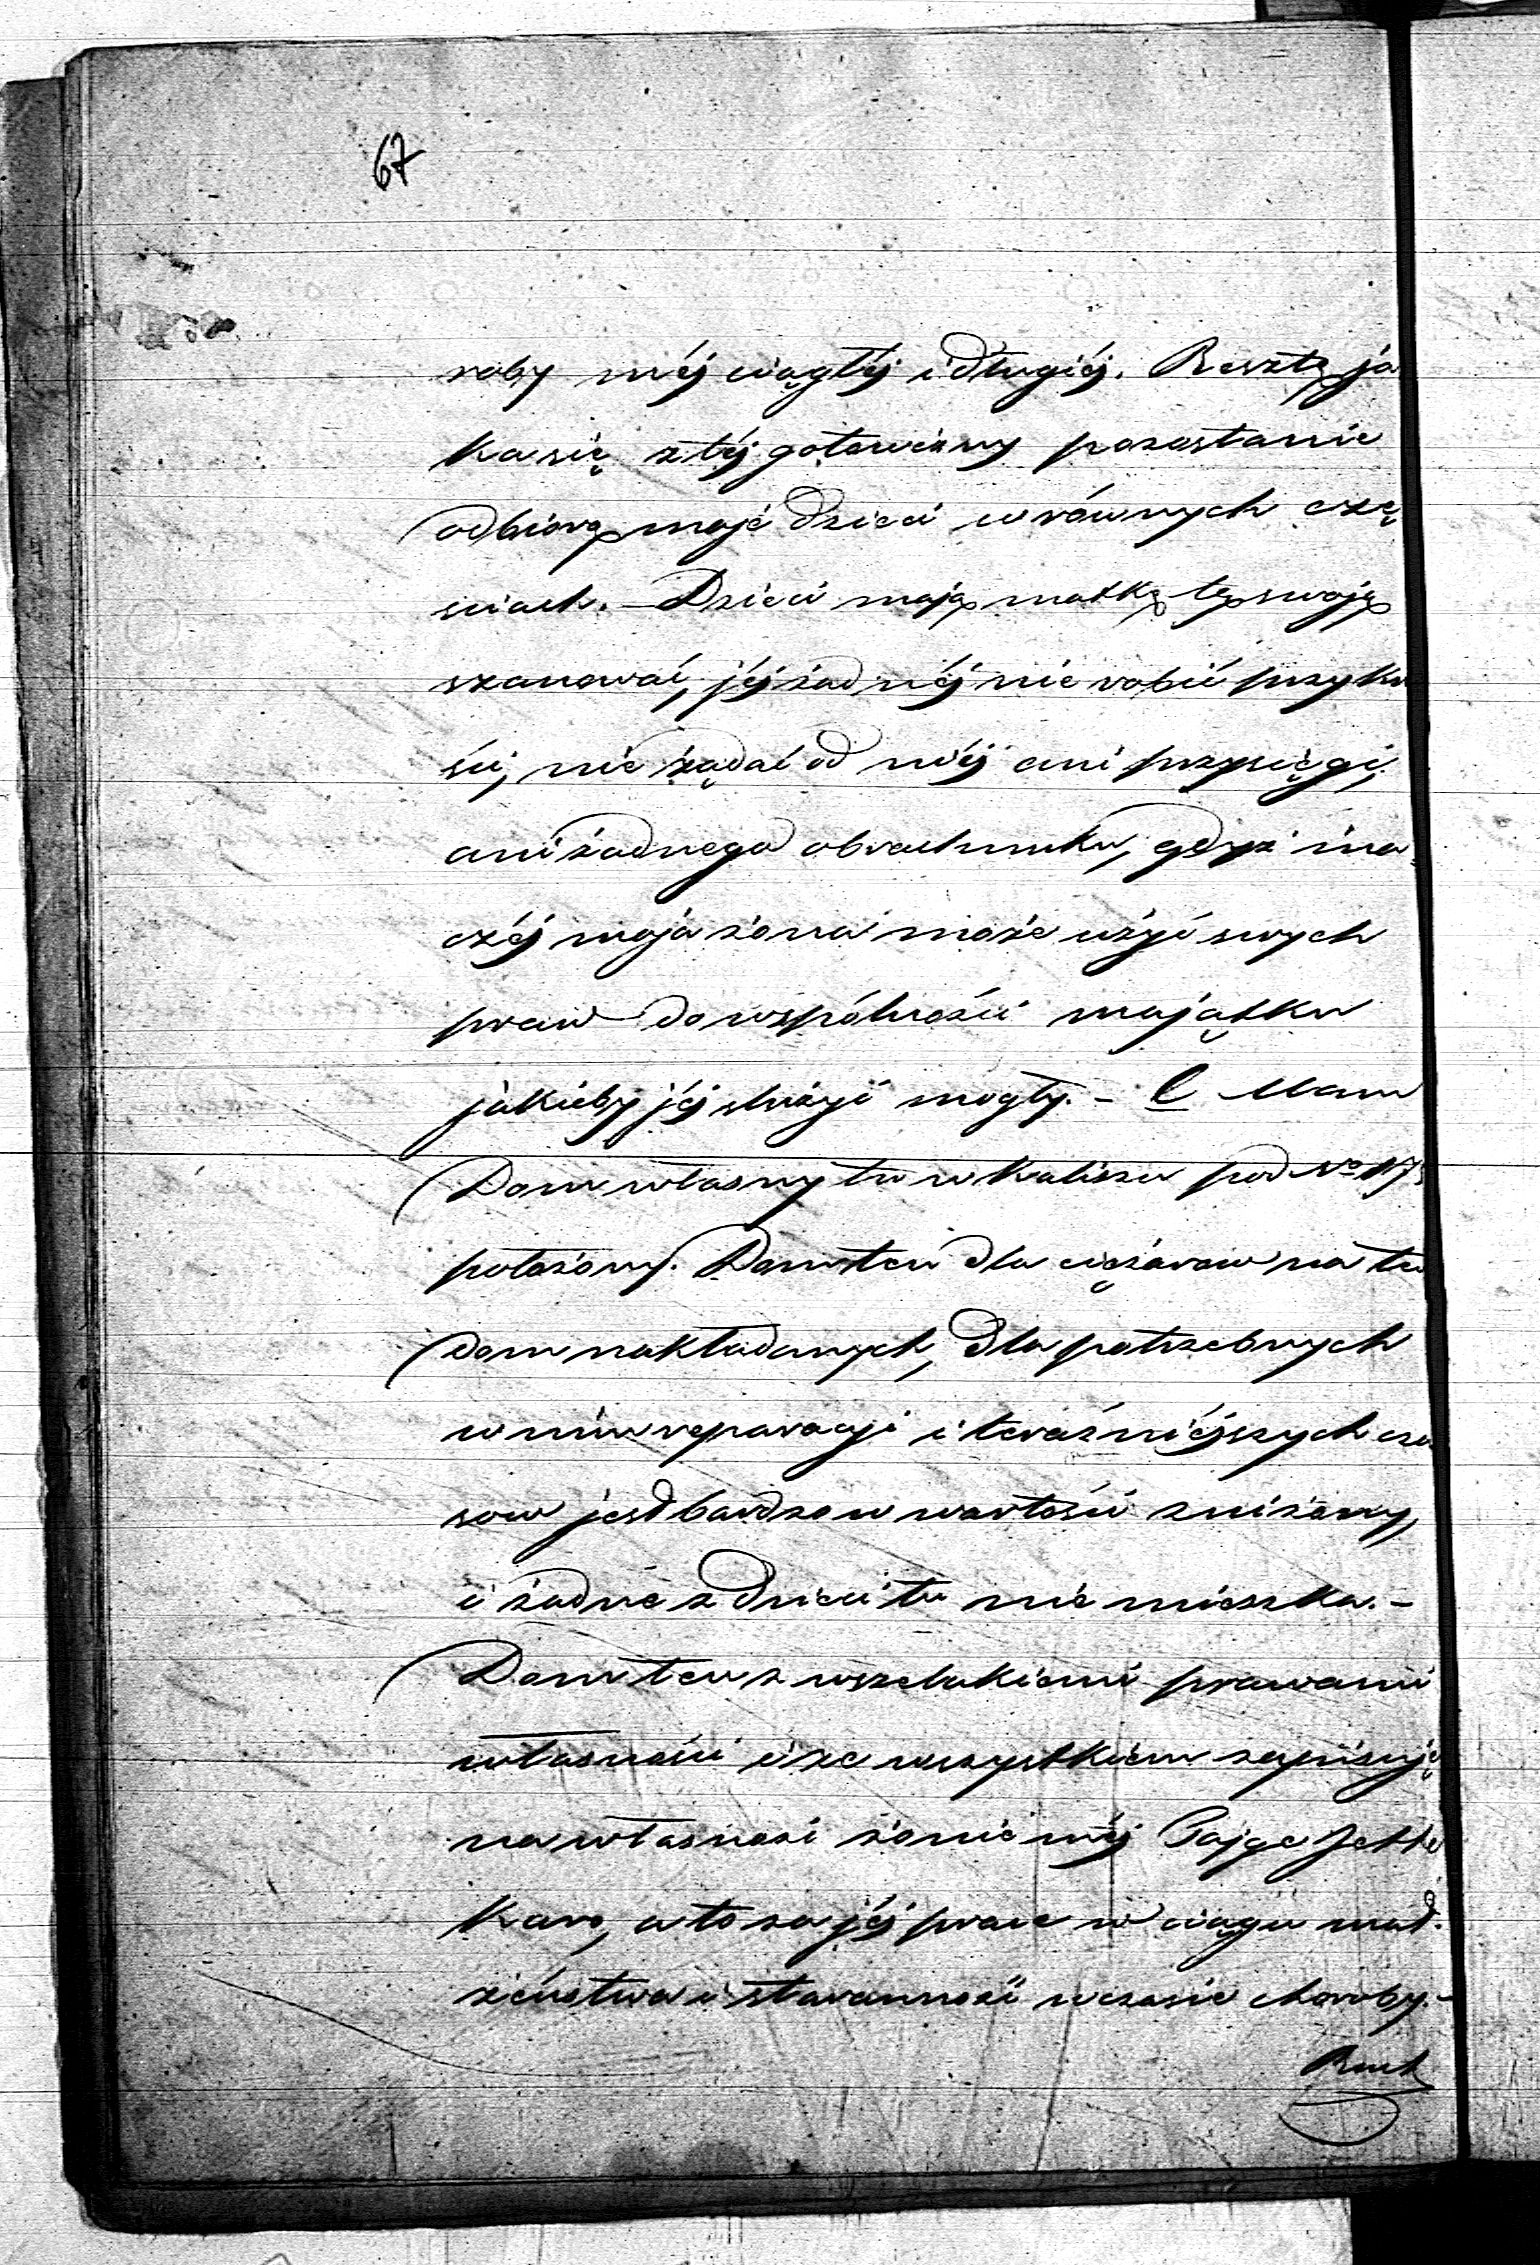 67
roby méj ciągłéj i długiéj. Resztę ja
ka się z téj gotowizny pozostanie
odbiorą moje dzieci w równych czę
sciach. – Dzieci mają matkę tę swoję
szanować, jéj żadnéj nie robić przykro
ści, nie żądać od niéj ani przysięgi,
ani żadnego obrachunku, gdyż ina
czéj moja żona może użyć swych
praw do wspólności majątku
jakieby jéj służyć mogły. – C Mam
Dom własny tu w Kaliszu pod No 17
położony. Dom ten dla ciężarow na ten
dom nakładanych, dla potrzebnych
w nim reparacji i teraźniéjszych cza
sow jest bardzo w wartości zniżony,
i żadne z dzieci tu nie mieszka. –
Dom ten z wszelakiemi prawami
własności i ze wszystkiem zapisuję
na własność żonie méj Pajge Jette
Karo, a to za jéj prace w ciągu mał.
żeństwa i staranność w czasie choroby. –
Ruch